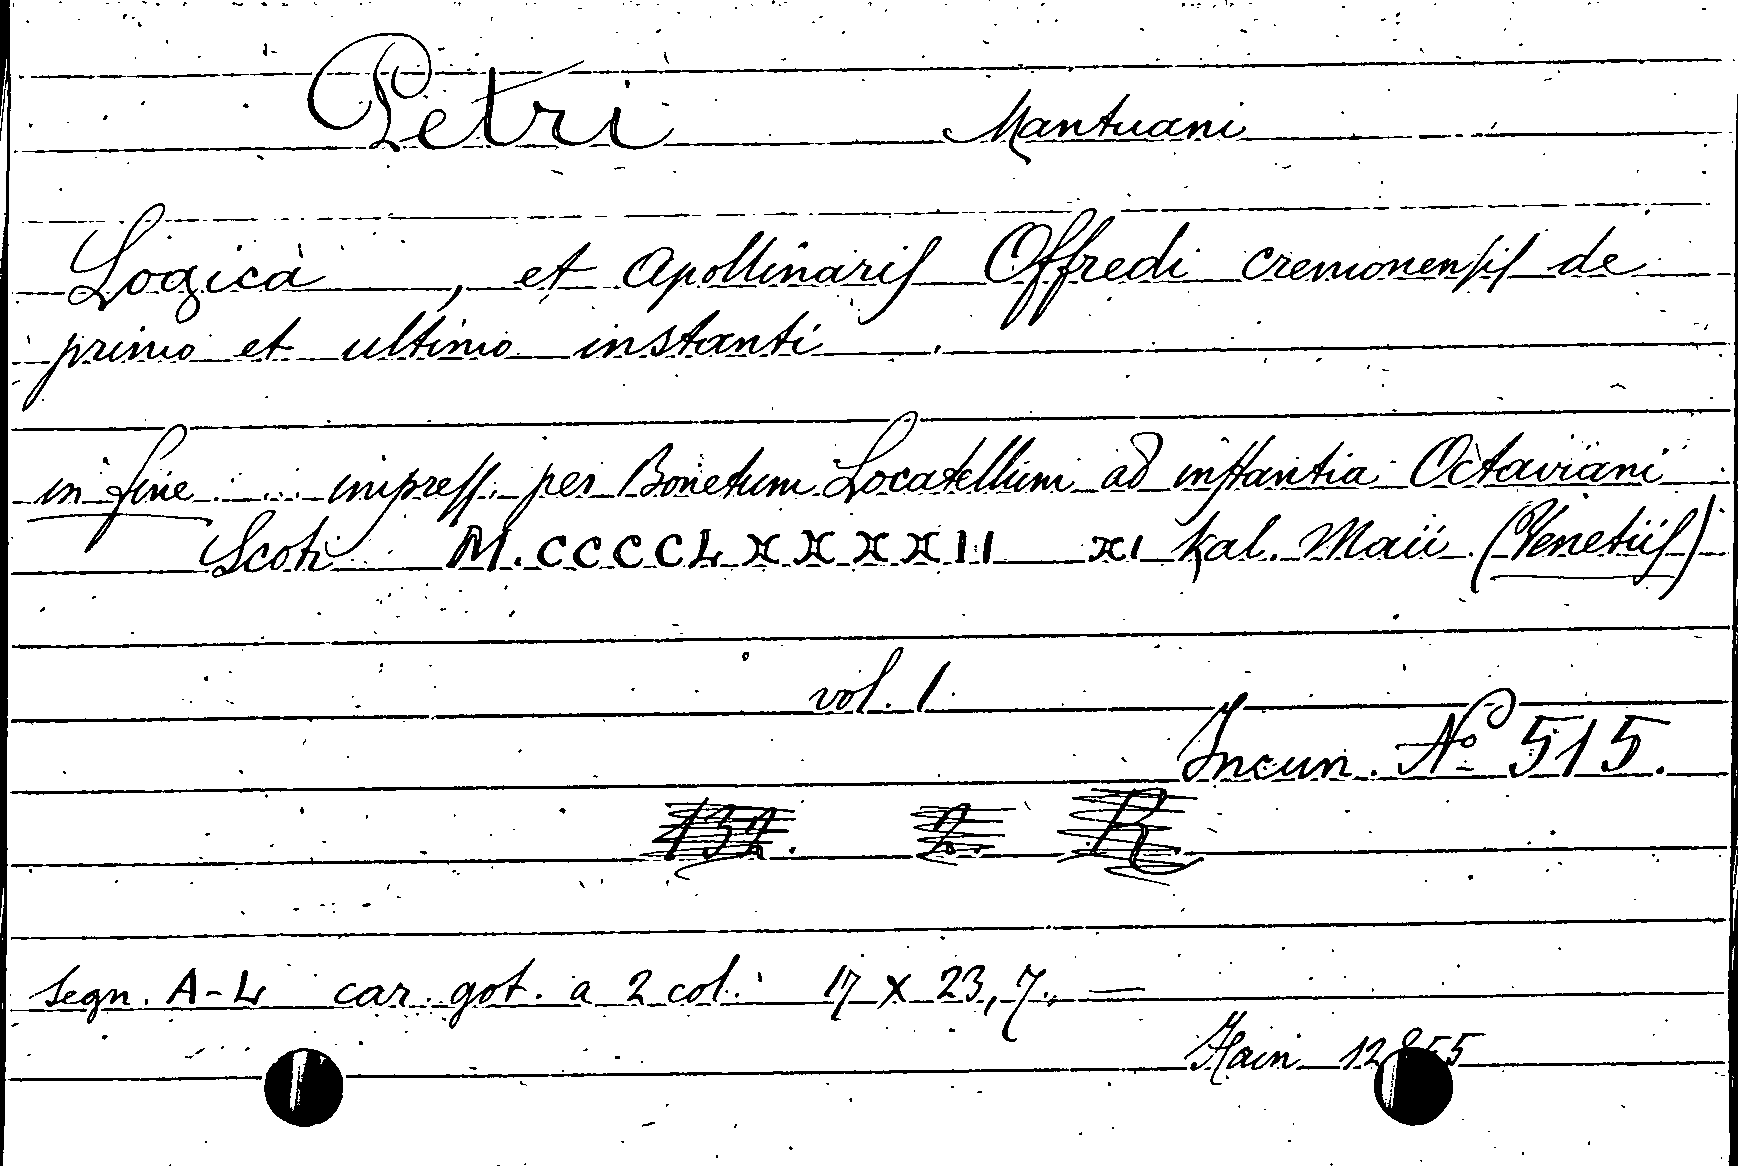 Petri Mantuani
Logica , et Apollinaris Offredi cremonensis de
primo et ultimo instanti .
in fine ... impress. per Bonetum Locatellum ad instantia Octaviani
Scoti M.CCCCLXXXXII XI kal. Maii (Venetiis)
vol. 1
Incun. Nº 515.
132. 2. R
segn. A-L car. got. a 2 col. 17 x 23,7. —
Hain 12855